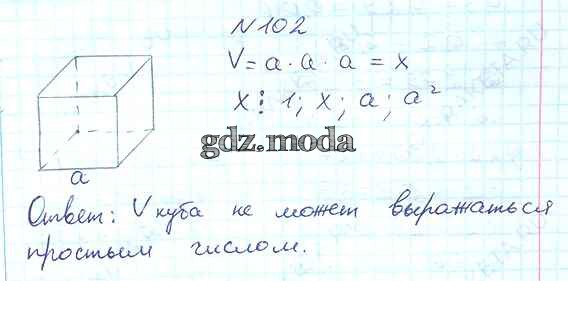 N 102
V = a · a · a = x
x ⋮ 1; x; a; a²
gdz.moda
a
Ответ: V куба не может выражаться
простым числом.